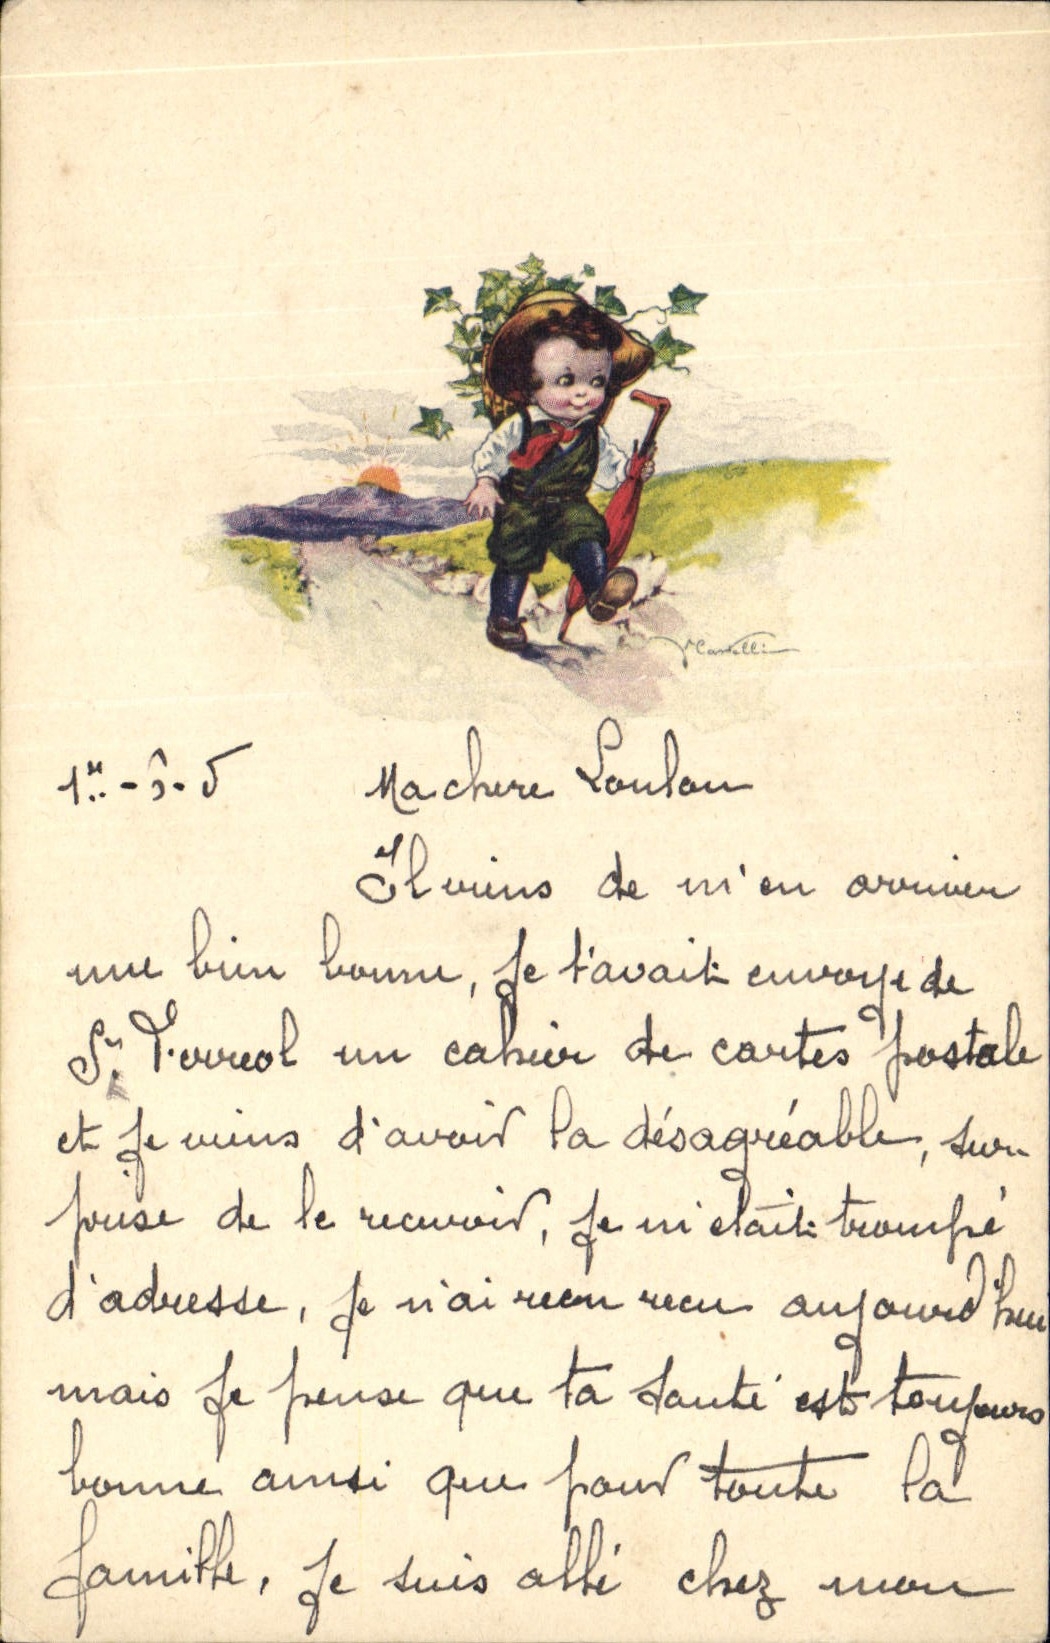 V Castelli
1er - 3 - 5 Ma chere Loulou
Il viens de m'en arriver
une bien bonne, je t'avait envoye de
St. Ferreol un cahier de cartes postale
et je viens d'avoir la désagréable, sur-
prise de le recevoir, je m'etait trompé
d'adresse, je n'ai rien recu aujourd'hui
mais je pense que ta santé est toujours
bonne ainsi que pour toute la
famille, je suis allé chez mon